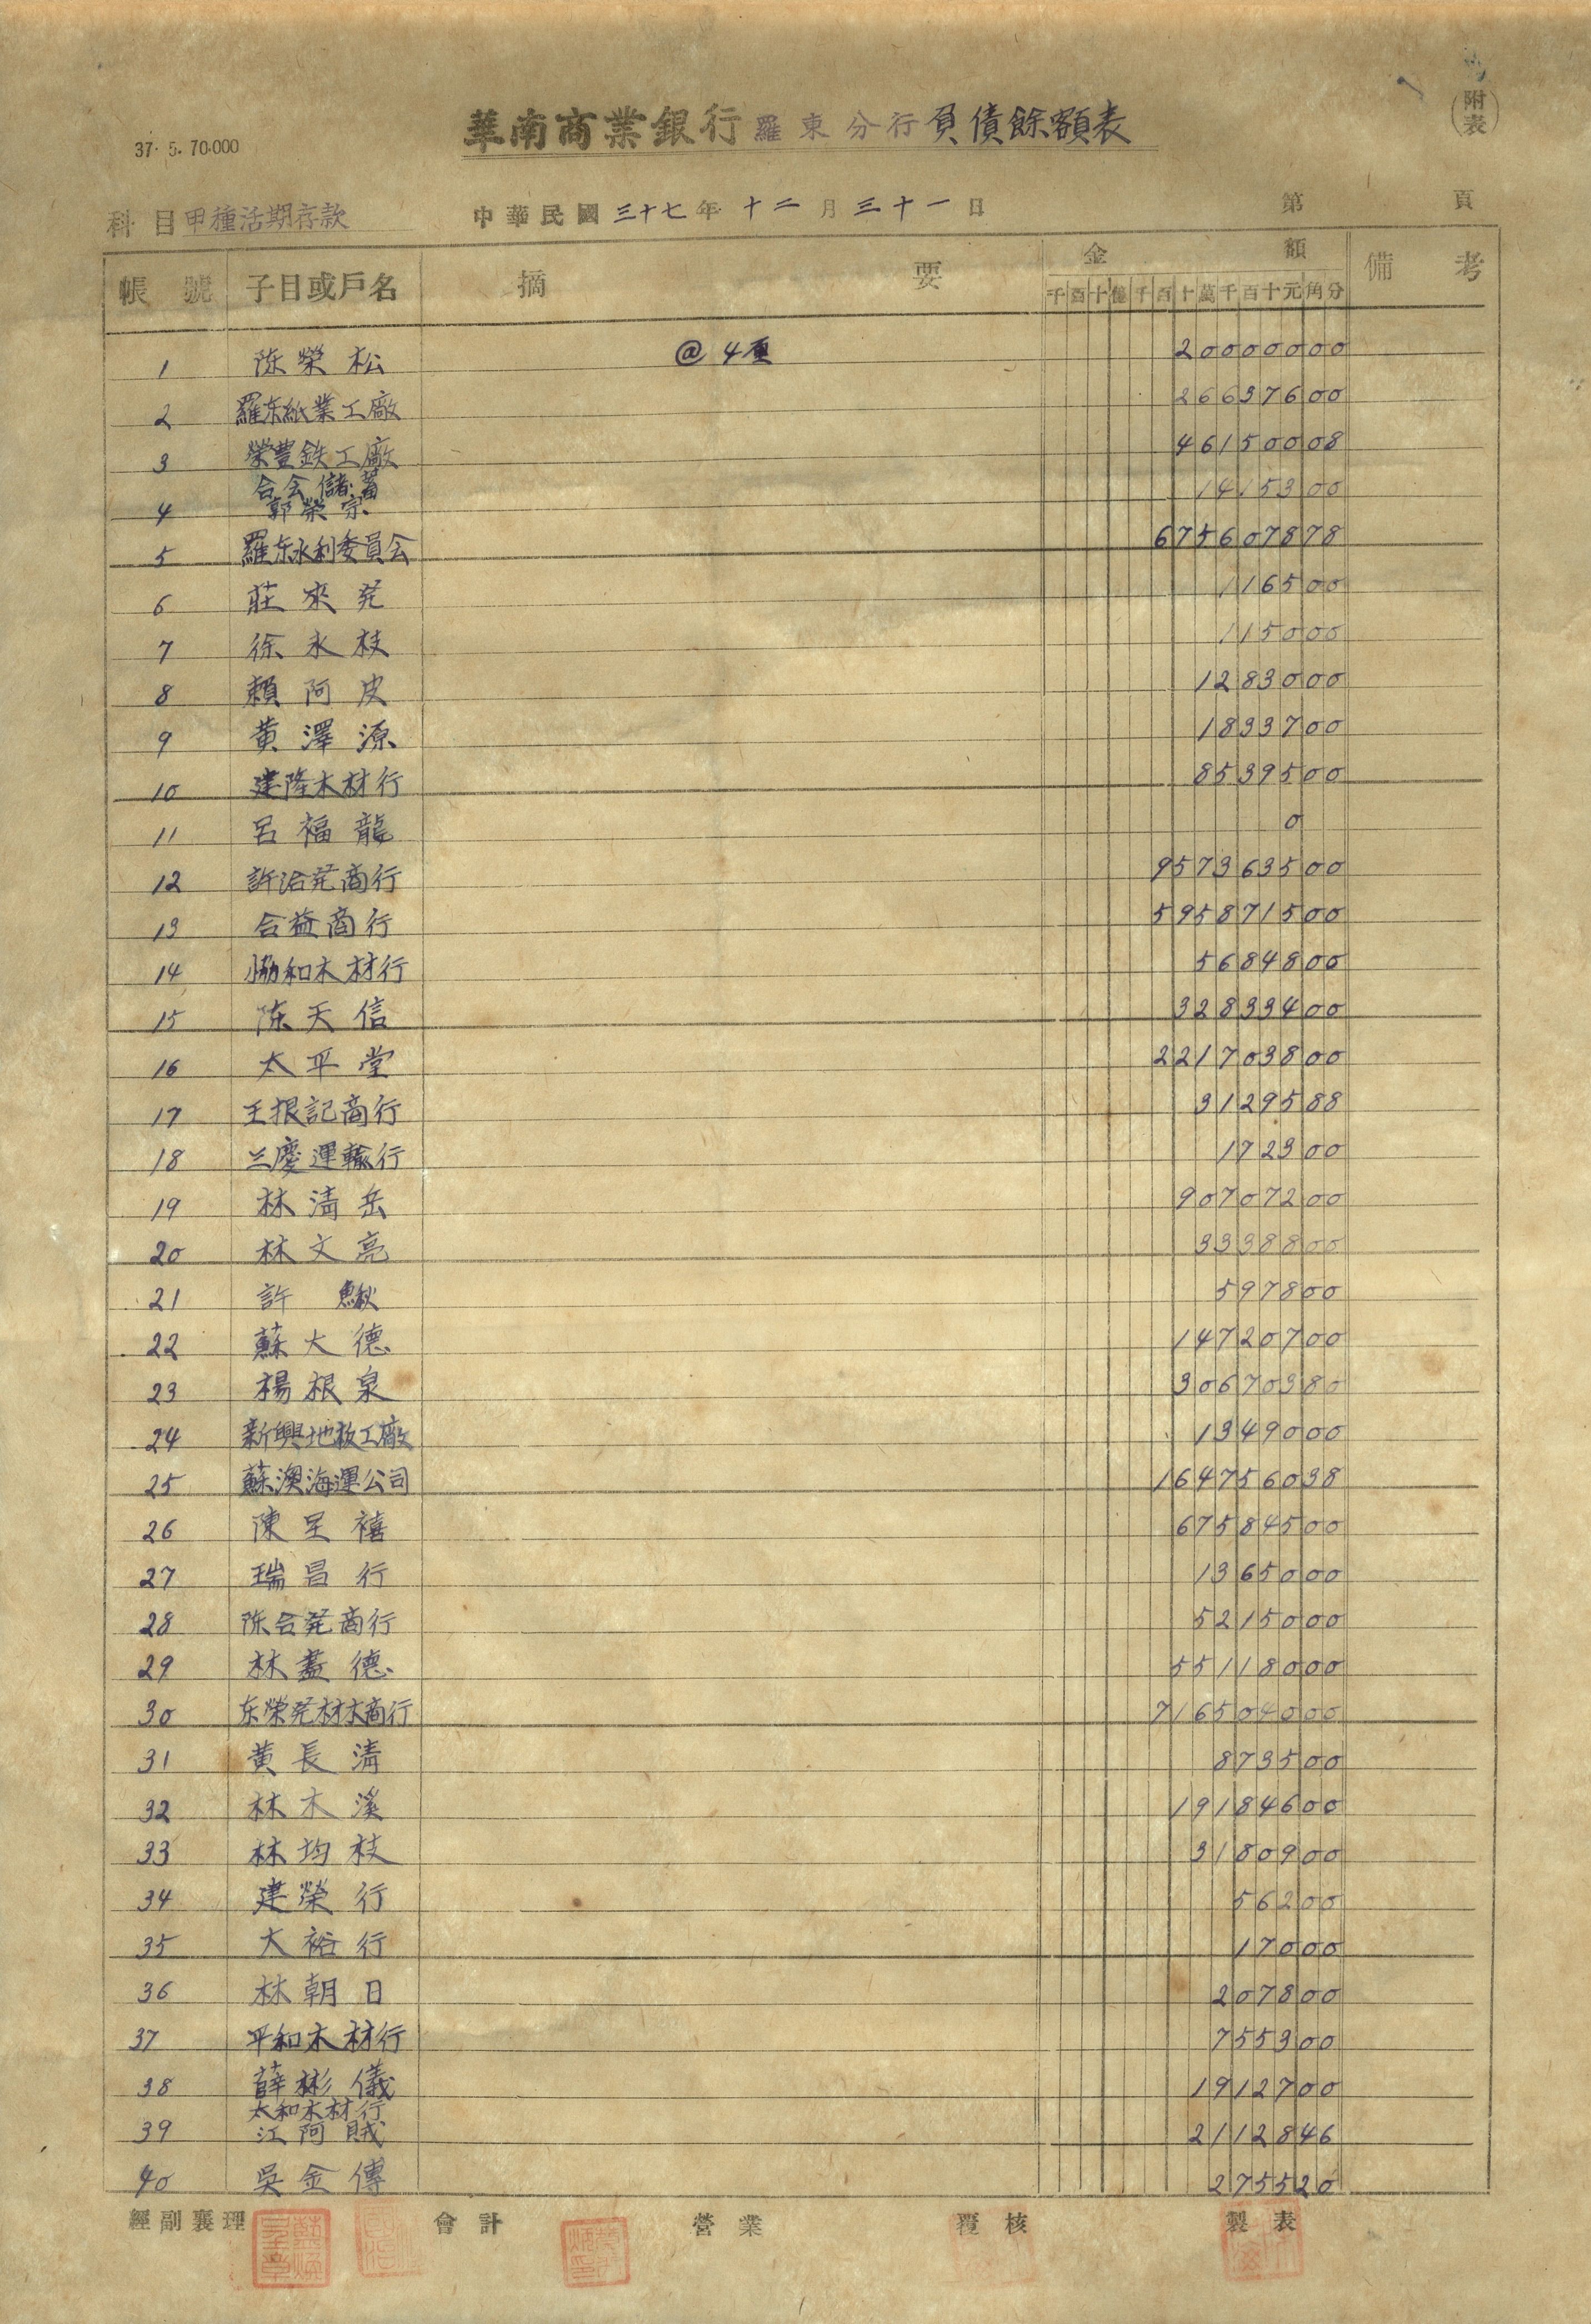 (附表)
華南商業銀行羅東分行負債餘額表
37. 5. 70.000
科目甲種活期存款 中華民國三十七年十二月三十一日 第 頁
帳號 子目或戶名 摘要 金額 備考
千百十億千百十萬千百十元角分
1 陈榮松 @4頁 20000000
2 羅东紙業工廠 26637600
3 榮豊鉄工廠 46150008
合会儲蓄
4 郭榮宗 1415300
5 羅东水利委員会 675607878
6 莊來発 116500
7 徐永枝 115000
8 賴阿皮 1283000
9 黃澤源 1833700
10 建隆木材行 8539500
11 呂福龍 0
12 許治発商行 957363500
13 合益商行 595871500
14 協和木材行 5684800
15 陈天信 32833400
16 太平堂 221703800
17 王根記商行 3129588
18 兰慶運輸行 172300
19 林清岳 90707200
20 林文亮 3338800
21 許鰍 597800
22 蘇大德 14720700
23 楊根泉 30670380
24 新興地板工廠 1349000
25 蘇澳海運公司 164756038
26 陳呈禧 67584500
27 瑞昌行 1365000
28 陈合発商行 5215000
29 林蓋德 55118000
30 东榮発材木商行 716504000
31 黃長清 873500
32 林木溪 19184600
33 林均枝 3180900
34 建榮行 56200
35 大裕行 17000
36 林朝日 207800
37 平和木材行 755300
38 薛彬儀 1912700
太和木材行
39 江阿賊 2112846
40 吳金傳 275520
經副襄理 會計 營業 覆核 製表